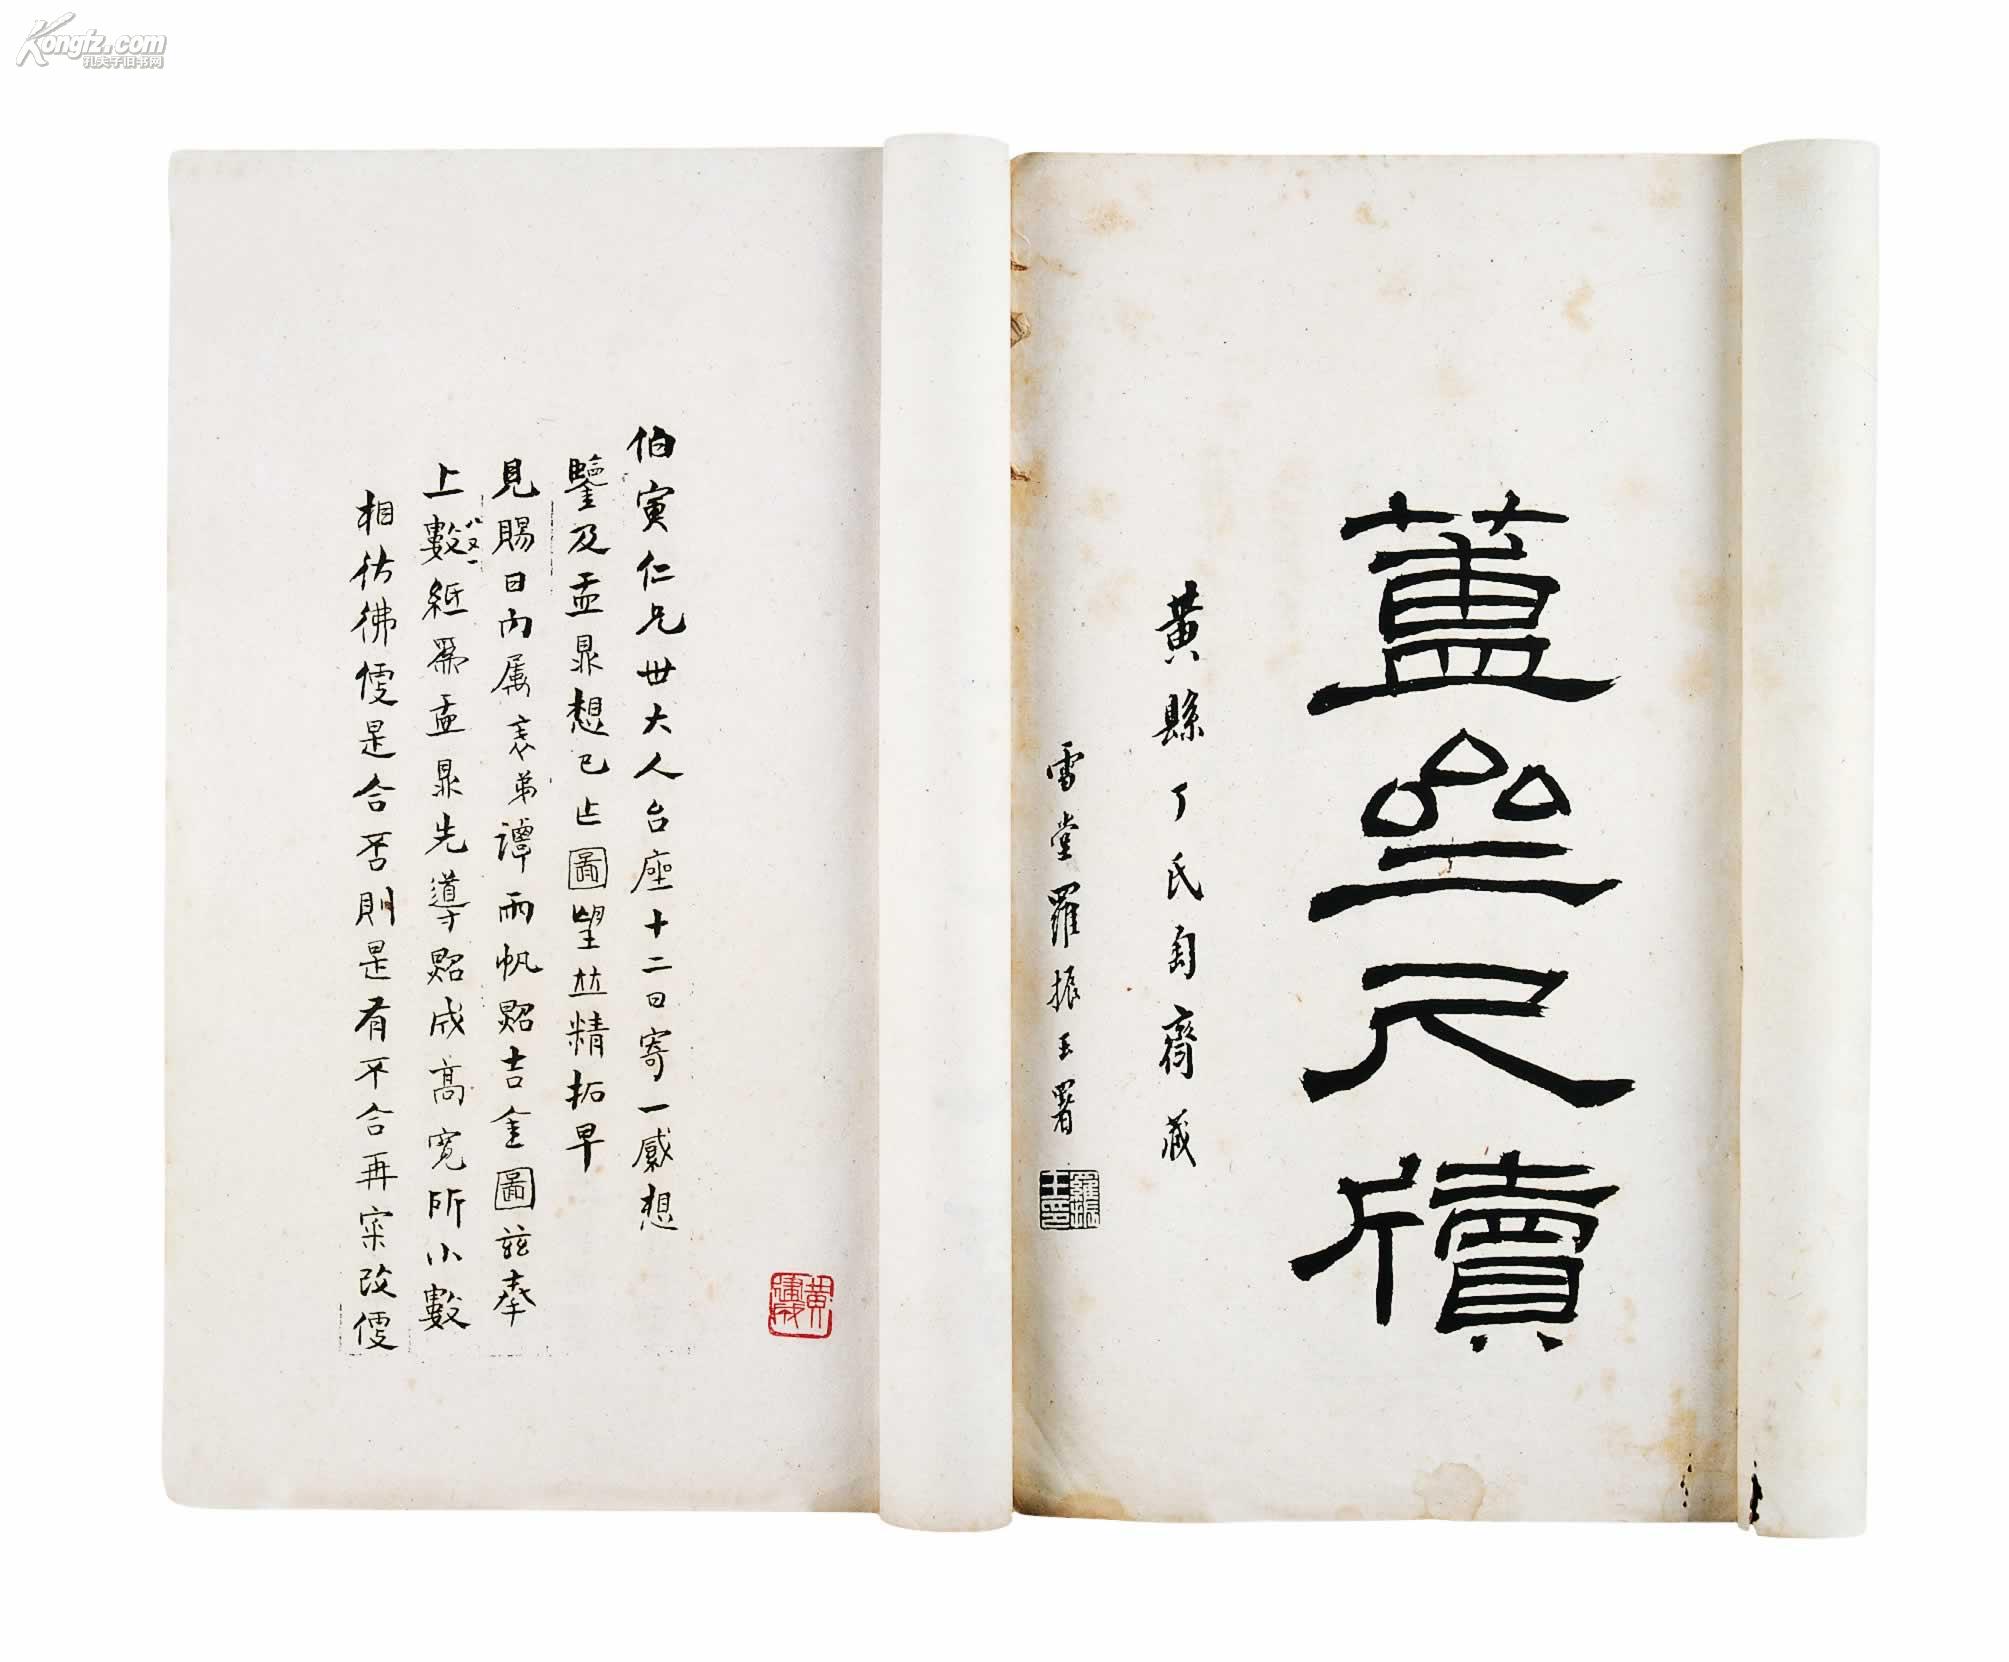 Kongfz.com
孔夫子旧书网
簠齋尺牘
黃縣丁氏匋齋藏
雪堂羅振玉署
伯寅仁兄世大人台座十二日寄一廠想
鑒及盂鼎想已亾圖望並精拓早
見賜日內屬表弟譚雨帆照吉金圖茲奉
上數紙爲盂鼎先導照成高寬所小數
相彷彿便是合否則是有不合再案改便